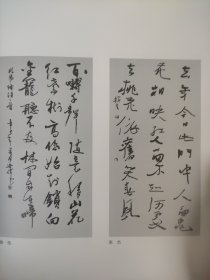 去年今日此門中人面桃
花相映红人面不知何處
去桃花依舊笑春風
百囀千聲随意移山花
红紫樹高低始知鎖向
金籠聽不及林間自在啼